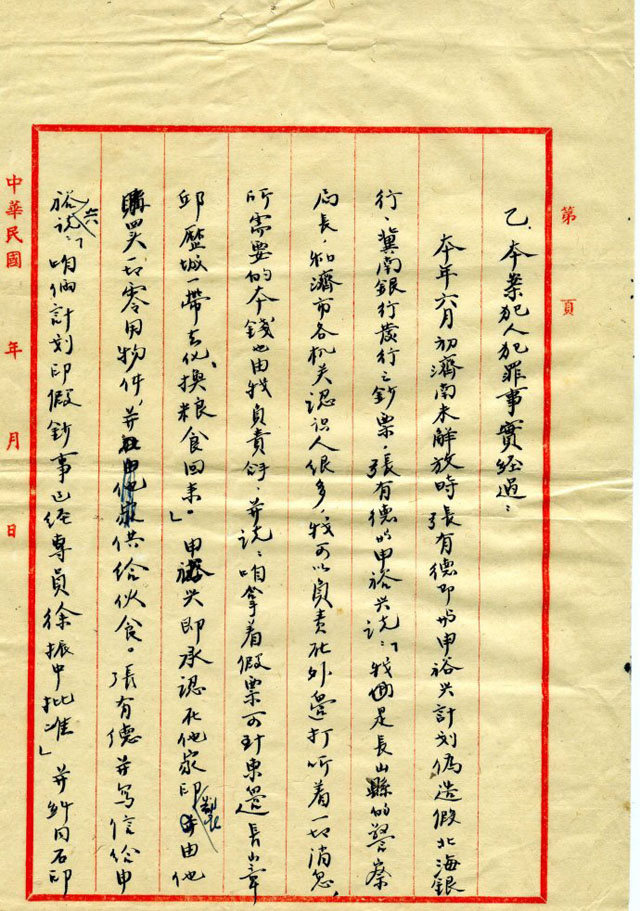 第 頁
乙.本案犯人犯罪事實經過：
本年六月初濟南未解放時張有德即与申裕兴計划偽造假北海銀
行、冀南銀行發行之鈔票，張有德以申裕兴説：「我是長山縣的警察
局長，和濟市各机关認识人很多，我可以負責在外邊打听着一切消息，
所需要的本錢也由我負責，并说：咱拿着假票可到東邊長山章
邱歷城一帶去化、换粮食回来。」申裕兴即承認在他家印製由他
購買一切零用物件，并由他家供给伙食。張有德并写信给申
裕兴说：「咱俩計划印假鈔事已经專員徐振中批准」并糾同石印
中華民國 年 月 日